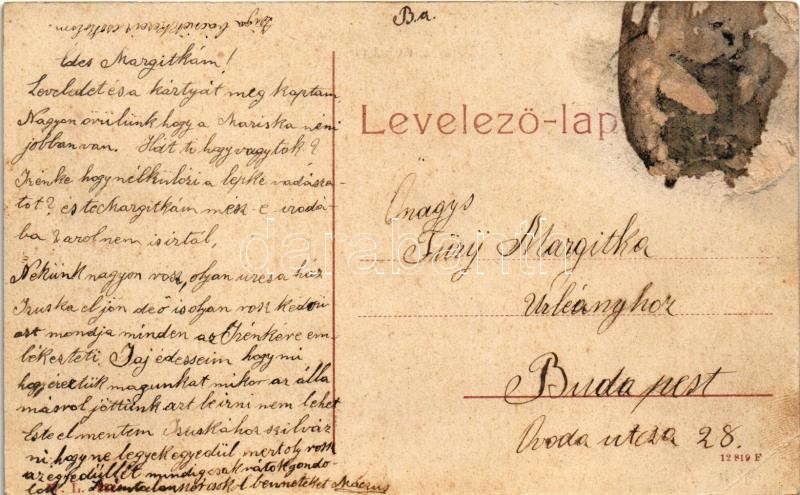 B.a.
Édes Margitkám!
Leveledet és a kártyát meg kaptam,
Nagyon örülünk hogy a Mariska néni
jobban van. Hát ti hogy vagytok?
Irénke hogy nélkülözi a lepke vadásza-
tot? és te Margitkám mész-e irodá-
ba? arol nem is irtál,
Nekünk nagyon rosz, olyan üres a ház
Iruska eljön de ő is olyan rosz kedvű
azt mondja minden az Irénkére em-
lékezteti. Jaj édesseim hogy mi
hogy éreztük magunkat mikor az állo
másrol jöttünk azt leirni nem lehet
Este el mentem Iruskához szilváz
ni hogy ne legyek egyedül mert oly rosz
az egyedüllét mindig csak rátok gondo-
lok. Számtalanszor csókol benneteket
Levelező-lap
Önagys
Füzÿ Margitka
Urleányhoz
Budapest
Ovoda utcza 28.
12819 F
darabanth